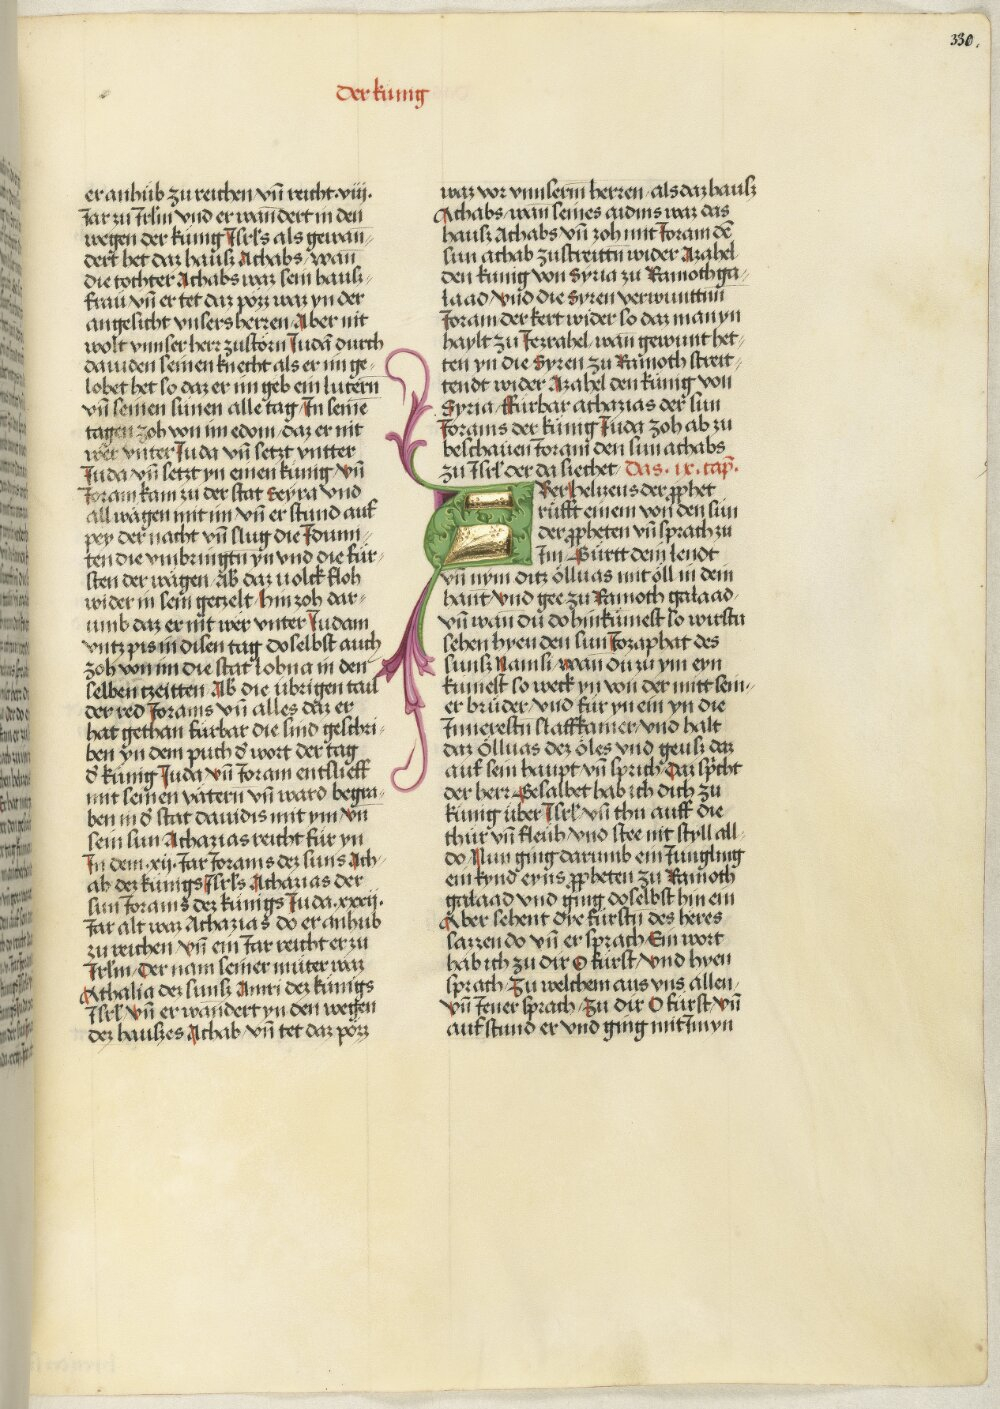 330.
Der kunig
er anhub zu reichen vñ reicht·viij·
Jar zu Jrlm vnd er wandert in den
wegen der kunig Jsrls als gewan⸗
dert het daz hausz Achabs/wan
die tochter Achabs waz sein hausz⸗
frau vñ er tet daz pösz waz yn der
angesicht vnsers herren/Aber nit
wolt vnnser herr zustörn Judā durch
dauiden seinen knecht als er im ge⸗
lobet het so daz er im geb ein lutern
vñ seinen sünen alle tag/In seine
tagen zoh von im edom/daz er nit
wer vnter Juda vñ setzt vntter
Juda vñ setzt yn einen kunig vñ
Joram kam zu der stat Seyra vnd
all wägen mit im vñ er stund auf
pey der nacht vñ slug die Jdumi⸗
ten die vmbringtn yn vnd die für⸗
sten der wägen/Ab daz volck floh
wider in sein getzelt/hin zoh dar⸗
umb daz er nit wer vnter Judam
vntz pis in disen tag doselbst auch
zoh von im die stat lobna in den
selben tzeitten/Ab die übrigen tail
der red Jorams vñ alles daz er
hat gethan fürbar die sind geschri⸗
ben yn dem puch d̕ wort der tag
d̕ künig Juda vñ Joram entslieff
mit seinen vätern vñ ward begra⸗
ben in d̕ stat dauidis mit ym/vñ
sein sun Achazias reicht für yn
In dem·xij·Jar Jorams dez suns Ach⸗
ab dez künigs Jsrls Achazias der
sun Jorams dez künigs Juda·xxxij·
Jar alt waz Achazias do er anhub
zu reichen vñ ein Jar reicht er zu
Jrlm/Der nam seiner müter waz
Athalia dez sunsz Amri dez künigs
Jsrl̕ vñ er wandert yn den wegen
dez hauszes Achab/vñ tet daz pösz
waz vor vnnserm herren/als daz hausz
Achabs/wan seines aidms waz das
hausz Achabs vñ zoh mit Joram dē
sun achab zustreittn wider Azahel
den kunig von Syria zu Ramoth ga⸗
laad/vnd die Syren verwunttnn
Joram der kert wider so daz man yn
haylt zu Jezrahel/wan gewunt het⸗
ten yn die Syren zu Ramoth streit⸗
tendt wider Azahel den künig von
Syria/Fürbar athazias der sun
Jorams der künig Juda zoh ab zu
beschauen Joram den sun achabs
zu Jsrl̕ der da siechet Das·ix·cap̃·
ber helizeus der p̃phet
rüfft einem von den sün
der p̃pheten vñ sprach zu
Im/Gürtt dem lendt
vñ nym ditz öllvas mit öll in dein
hant/vnd gee zu Ramoth galaad⸗
vñ wan du dohin kumest so wirstu
sehen hyen den sun Josaphat des
sunsz Namsi/wan du zu ym eyn
kumest so weck yn von der mitt sein⸗
er brüder/vnd für yn ein yn die
Innerestn slaffkamer/vnd halt
daz öllvas dez öles vnd geusz daz
auf sein haupt vñ sprich/Daz sp̃cht
der herr/Gesalbet hab ich dich zu
kunig über Jsrl̕/vñ thu auff die
thür vñ fleüh/vnd stee nit styll all⸗
do/Nun ging darumb ein Jungling
ein kynd eyns p̃pheten zu Ramoth
galaad vnd ging doselbst hin ein
Aber sehent dye fürstñ des heres
sazzen do vñ er sprach/Ein wort
hab ich zu dir O fürst/vnd hyeu
sprach/Zu welchem aus vns allen⸗
vñ Jener sprach/Zu dir O fürst/vñ
auf stund er vnd ging mit Im yn